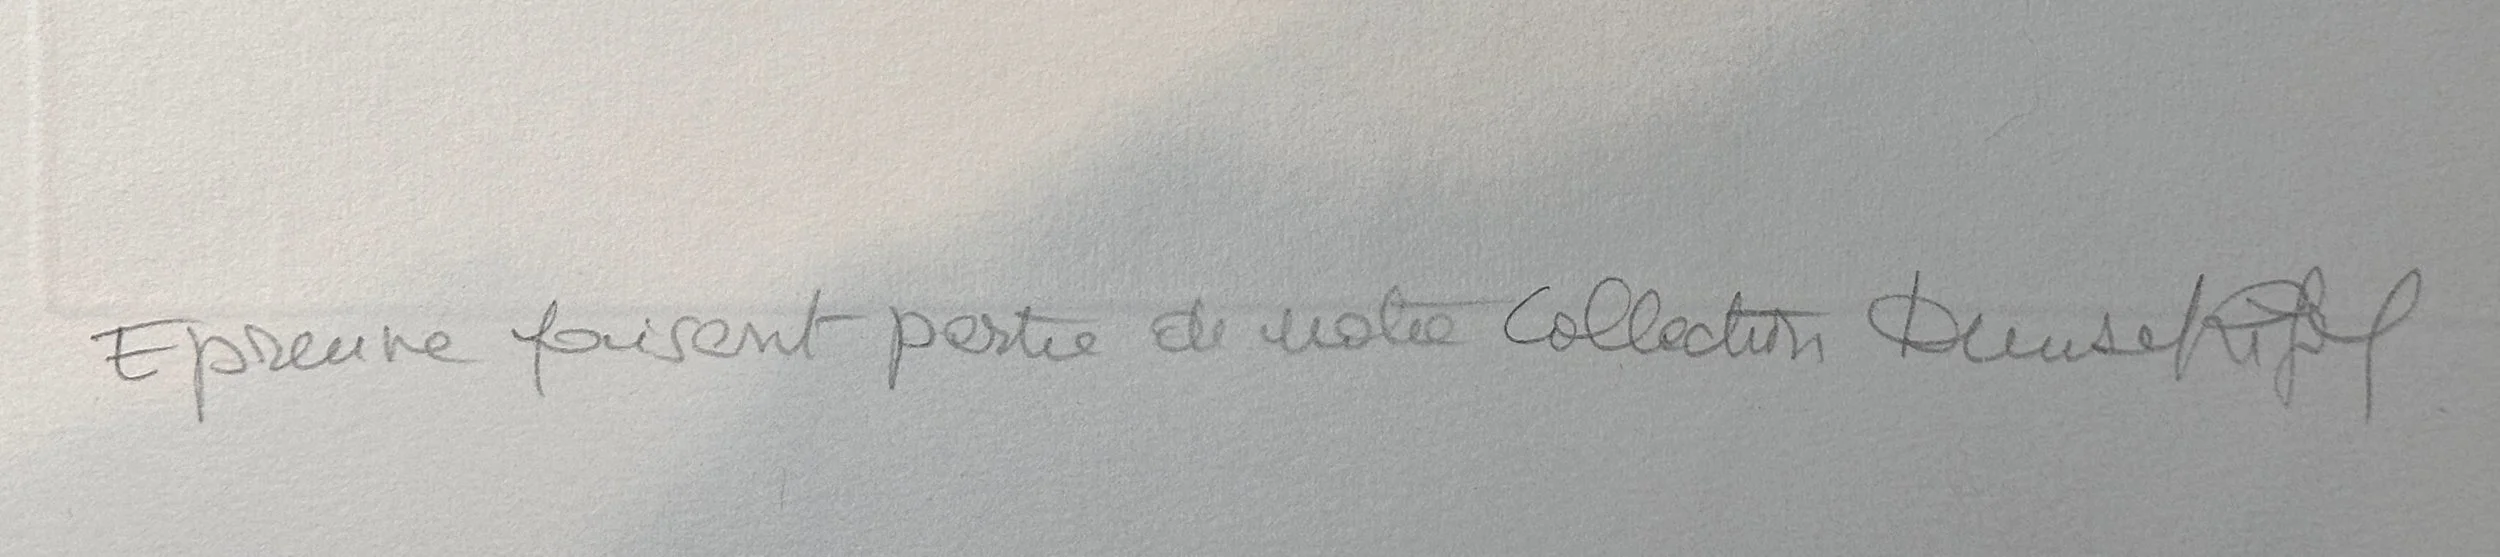 Epreuve faisant partie de notre Collection Denise